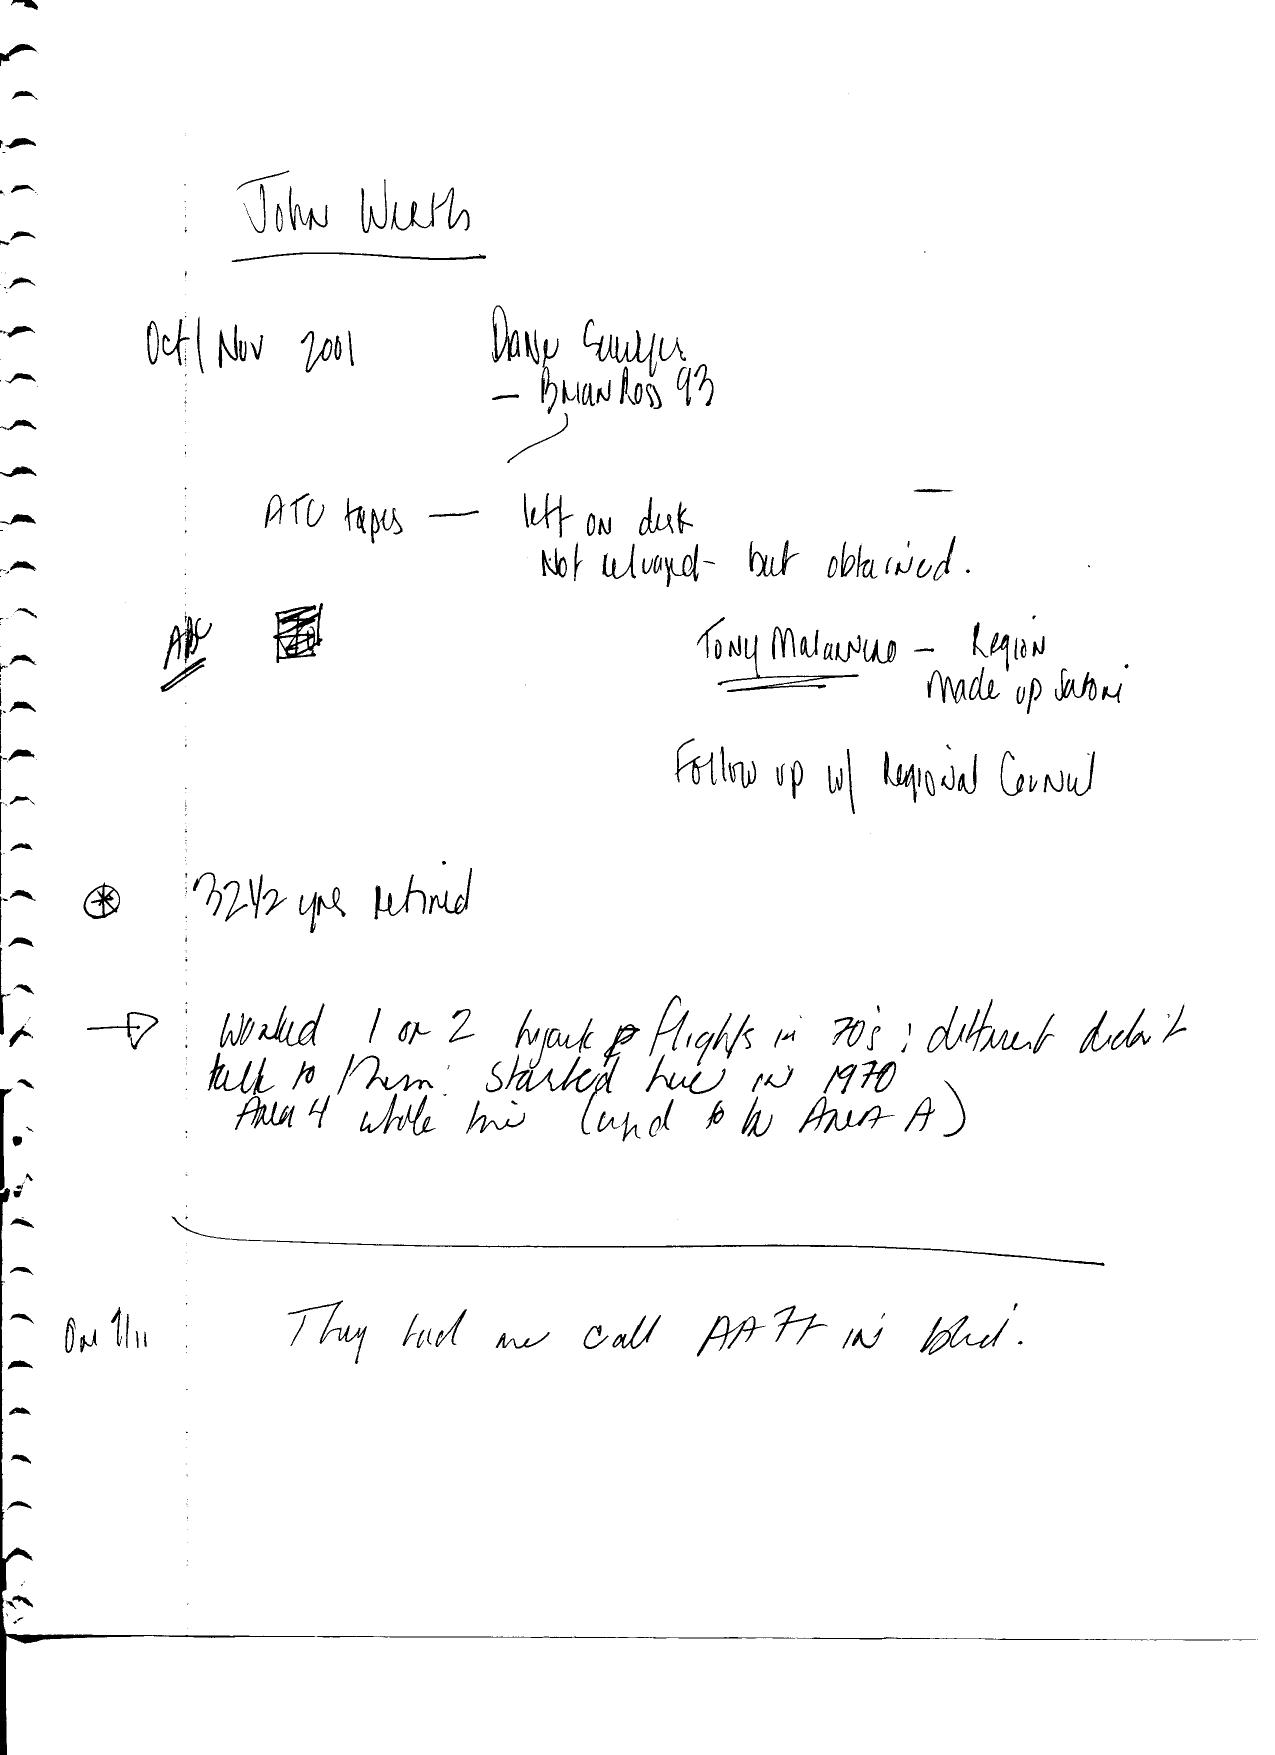 John Werth
Oct/Nov 2001
Dane
— Brian Ross 93
ATC tapes — left on desk
Not released - but obtained.
ABC
Tony — Region
Made up Satori
Follow up w/ Regional Council
32 1/2 yrs retired
Worked 1 or 2 hijack flights in 70's; different didn't
talk to them. Started here in 1970
Area 4 whole time (used to be Area A)
On 9/11
They had me call AA77 in blind.